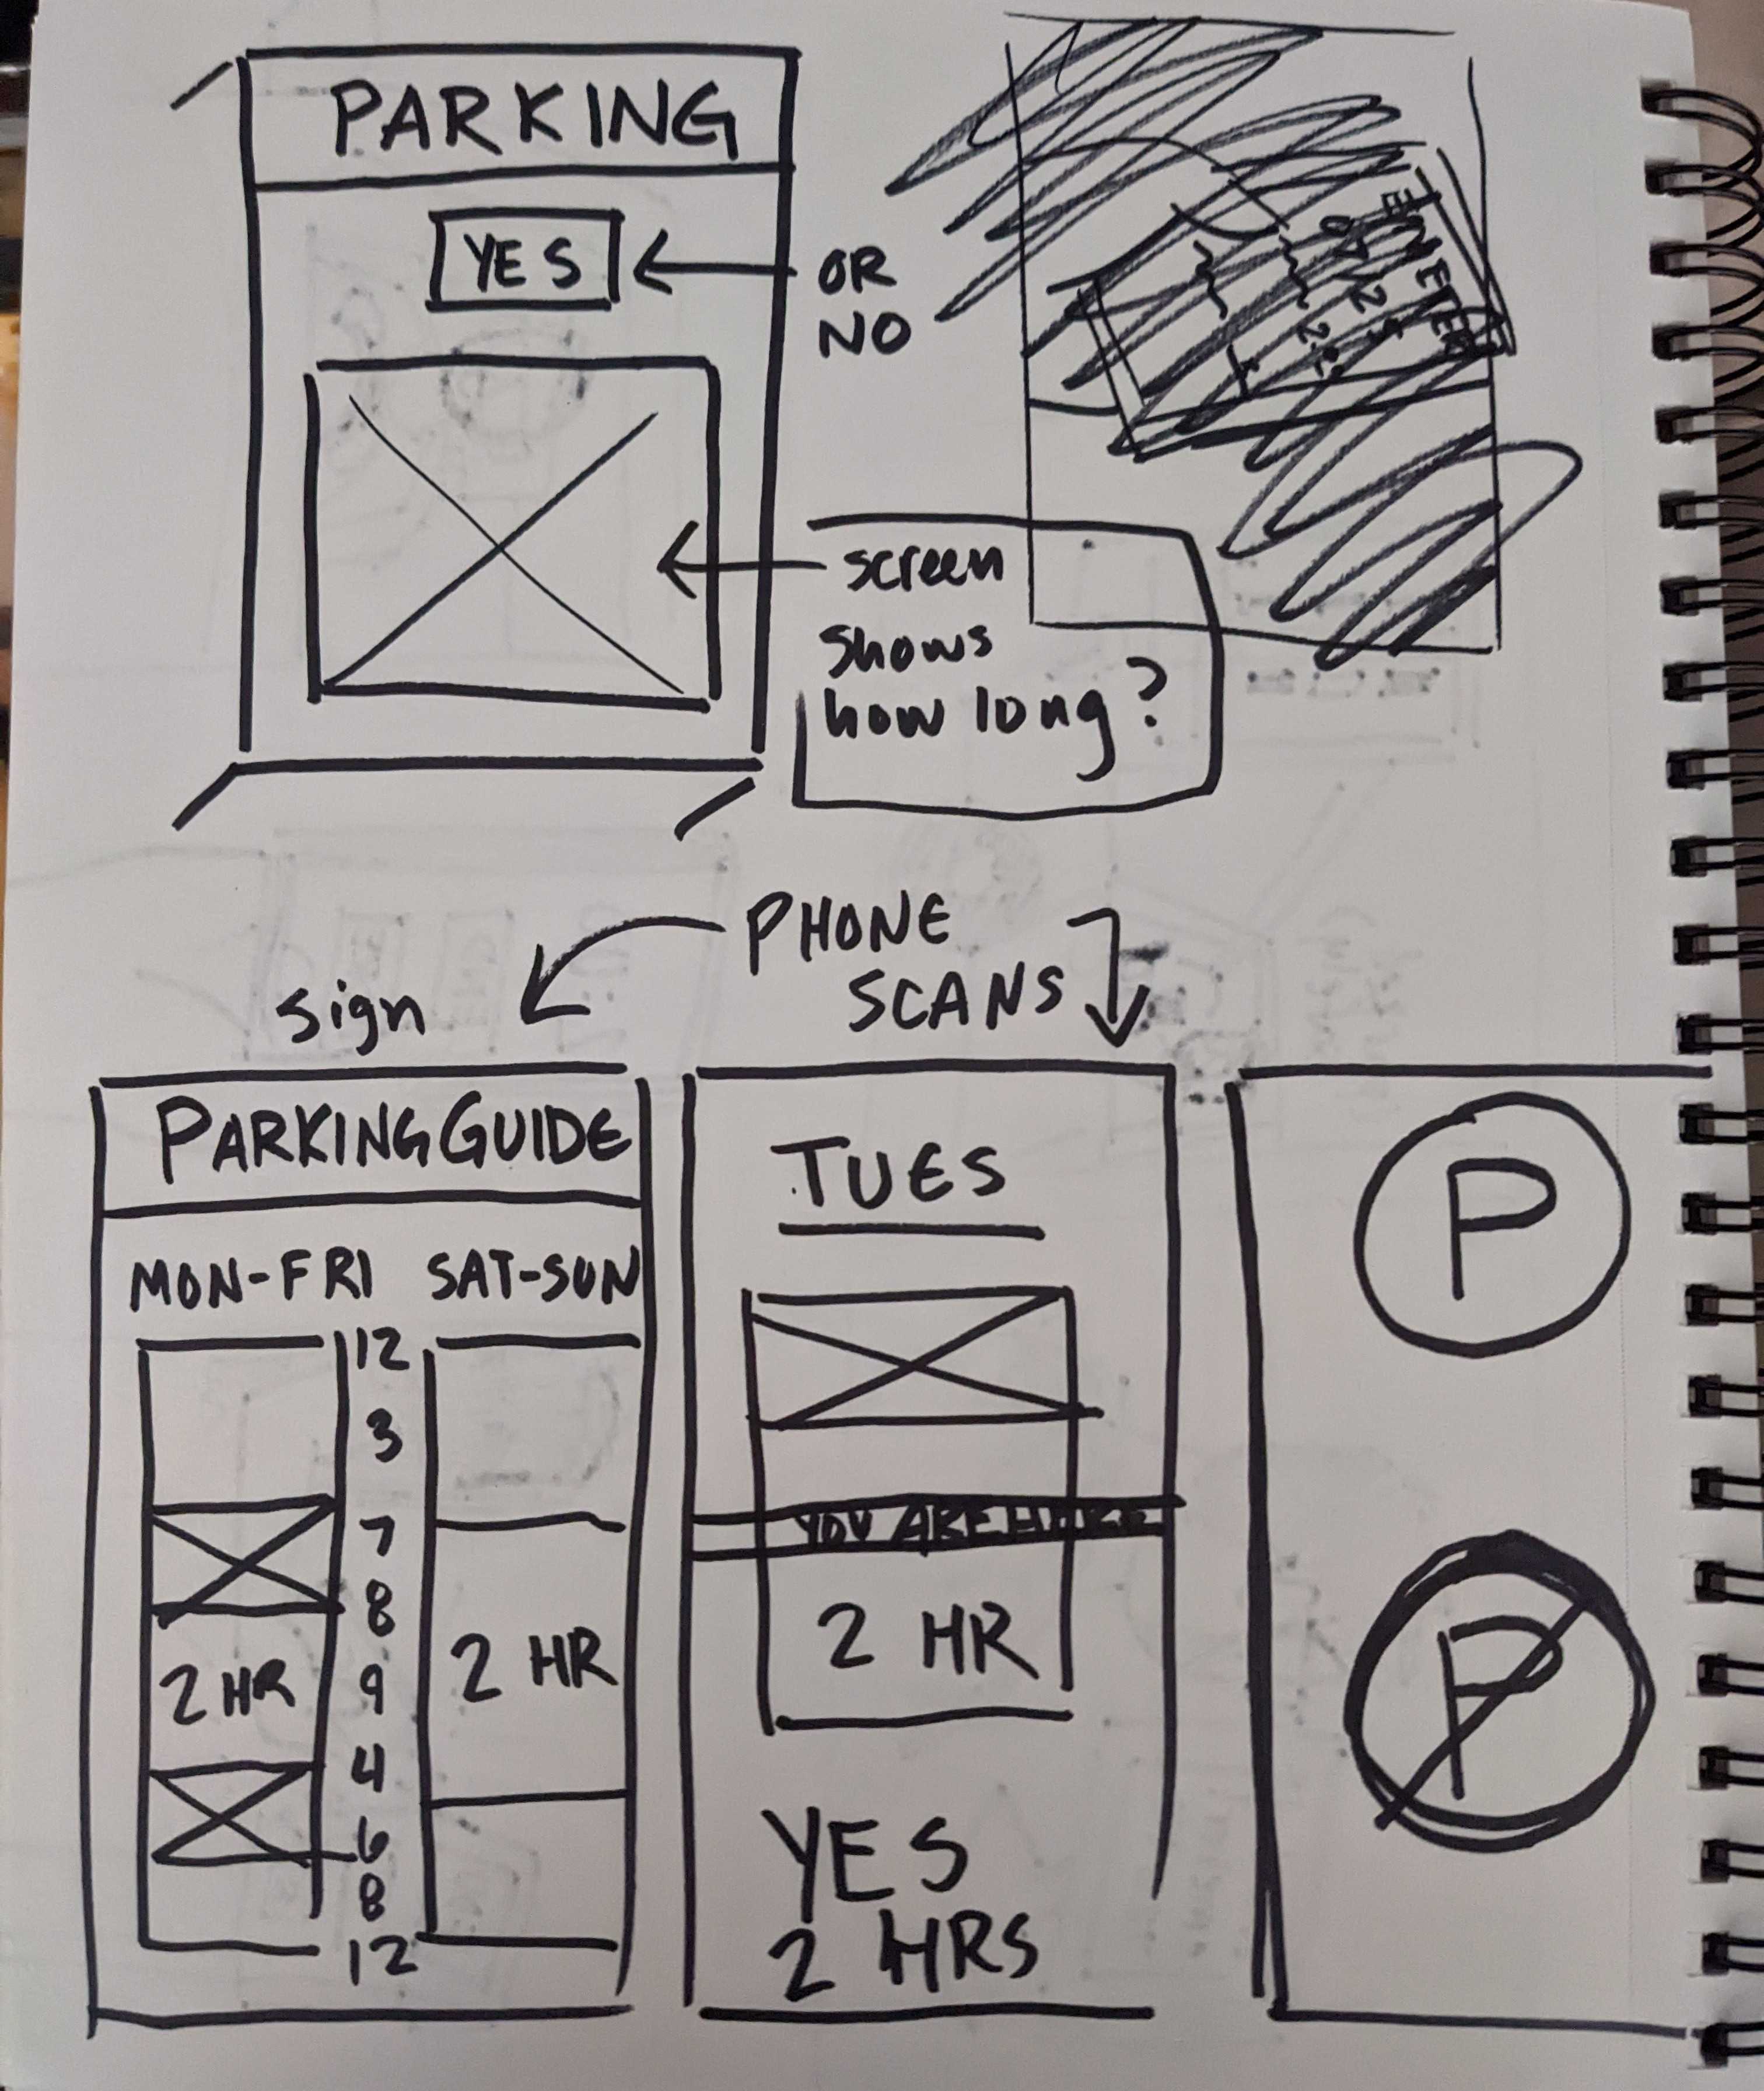 PARKING
YES
OR
NO
screen
shows
how long?
PHONE
SCANS
sign
PARKING GUIDE
MON-FRI SAT-SUN
12
3
7
8
2 HR 9 2 HR
4
6
8
12
TUES
YOU ARE HERE
2 HR
YES
2 HRS
P
P